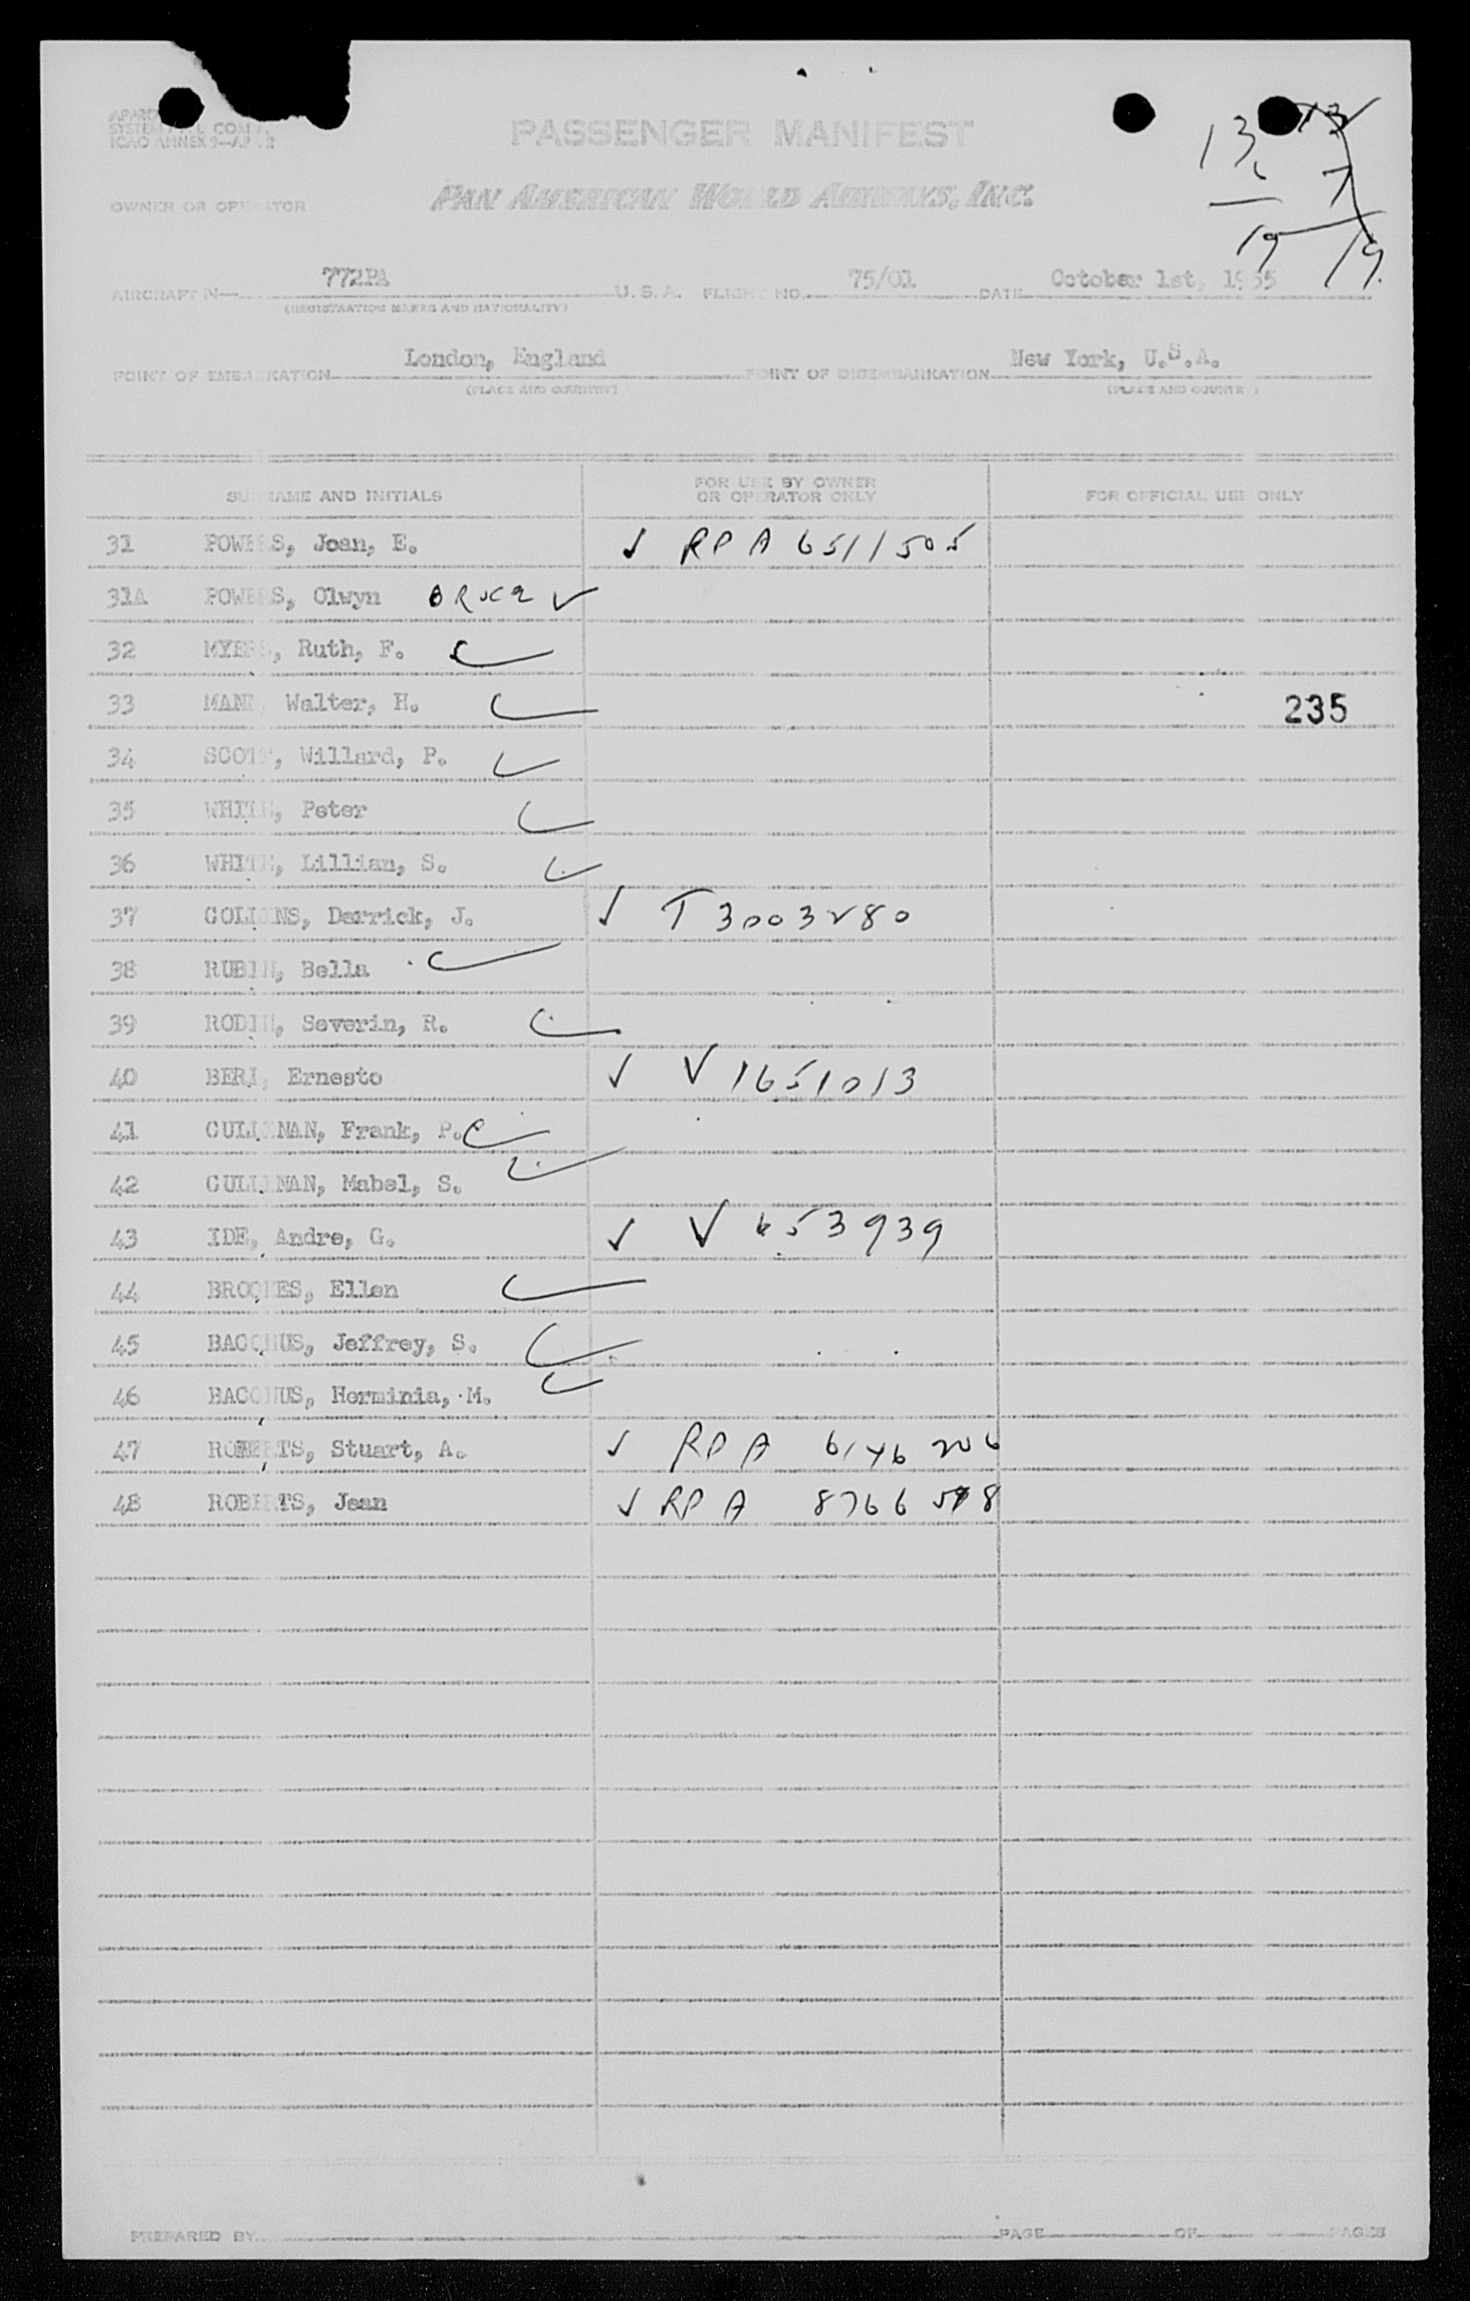 PASSENGER MANIFEST
OWNER OR OPERATOR PAN AMERICAN WORLD AIRWAYS, INC.
13 13
6 7
19 19
AIRCRAFT N— 772PA U.S.A. FLIGHT NO. 75/01 DATE October 1st, 1955
(REGISTRATION MARKS AND NATIONALITY)
POINT OF EMBARKATION London, England POINT OF DISEMBARKATION New York, U.S.A.
(PLACE AND COUNTRY) (PLACE AND COUNTRY)
SURNAME AND INITIALS FOR USE BY OWNER OR OPERATOR ONLY FOR OFFICIAL USE ONLY
31 POWERS, Joan, E. ✓ RPA 6511505
31A POWERS, Olwyn ✓
32 MYERS, Ruth, F. ✓
33 Walter, H. ✓ 235
34 SCOTT, Willard, P. ✓
35 WHITE, Peter ✓
36 WHITE, Lillian, S. ✓
37 Derrick, J. ✓ T 3003280
38 RUBIN, Bella ✓
39 RODIN, Severin, R. ✓
40 Ernesto ✓ V 1651013
41 CULLINAN, Frank, P. ✓
42 CULLINAN, Mabel, S. ✓
43 IDE, Andre, G. ✓ V 653939
44 BROOKES, Ellen ✓
45 BACCHUS, Jeffrey, S. ✓
46 BACCHUS, Herminia, M. ✓
47 ROBERTS, Stuart, A. ✓ RPA 6146206
48 ROBERTS, Jean ✓ RPA
PREPARED BY PAGE OF PAGES